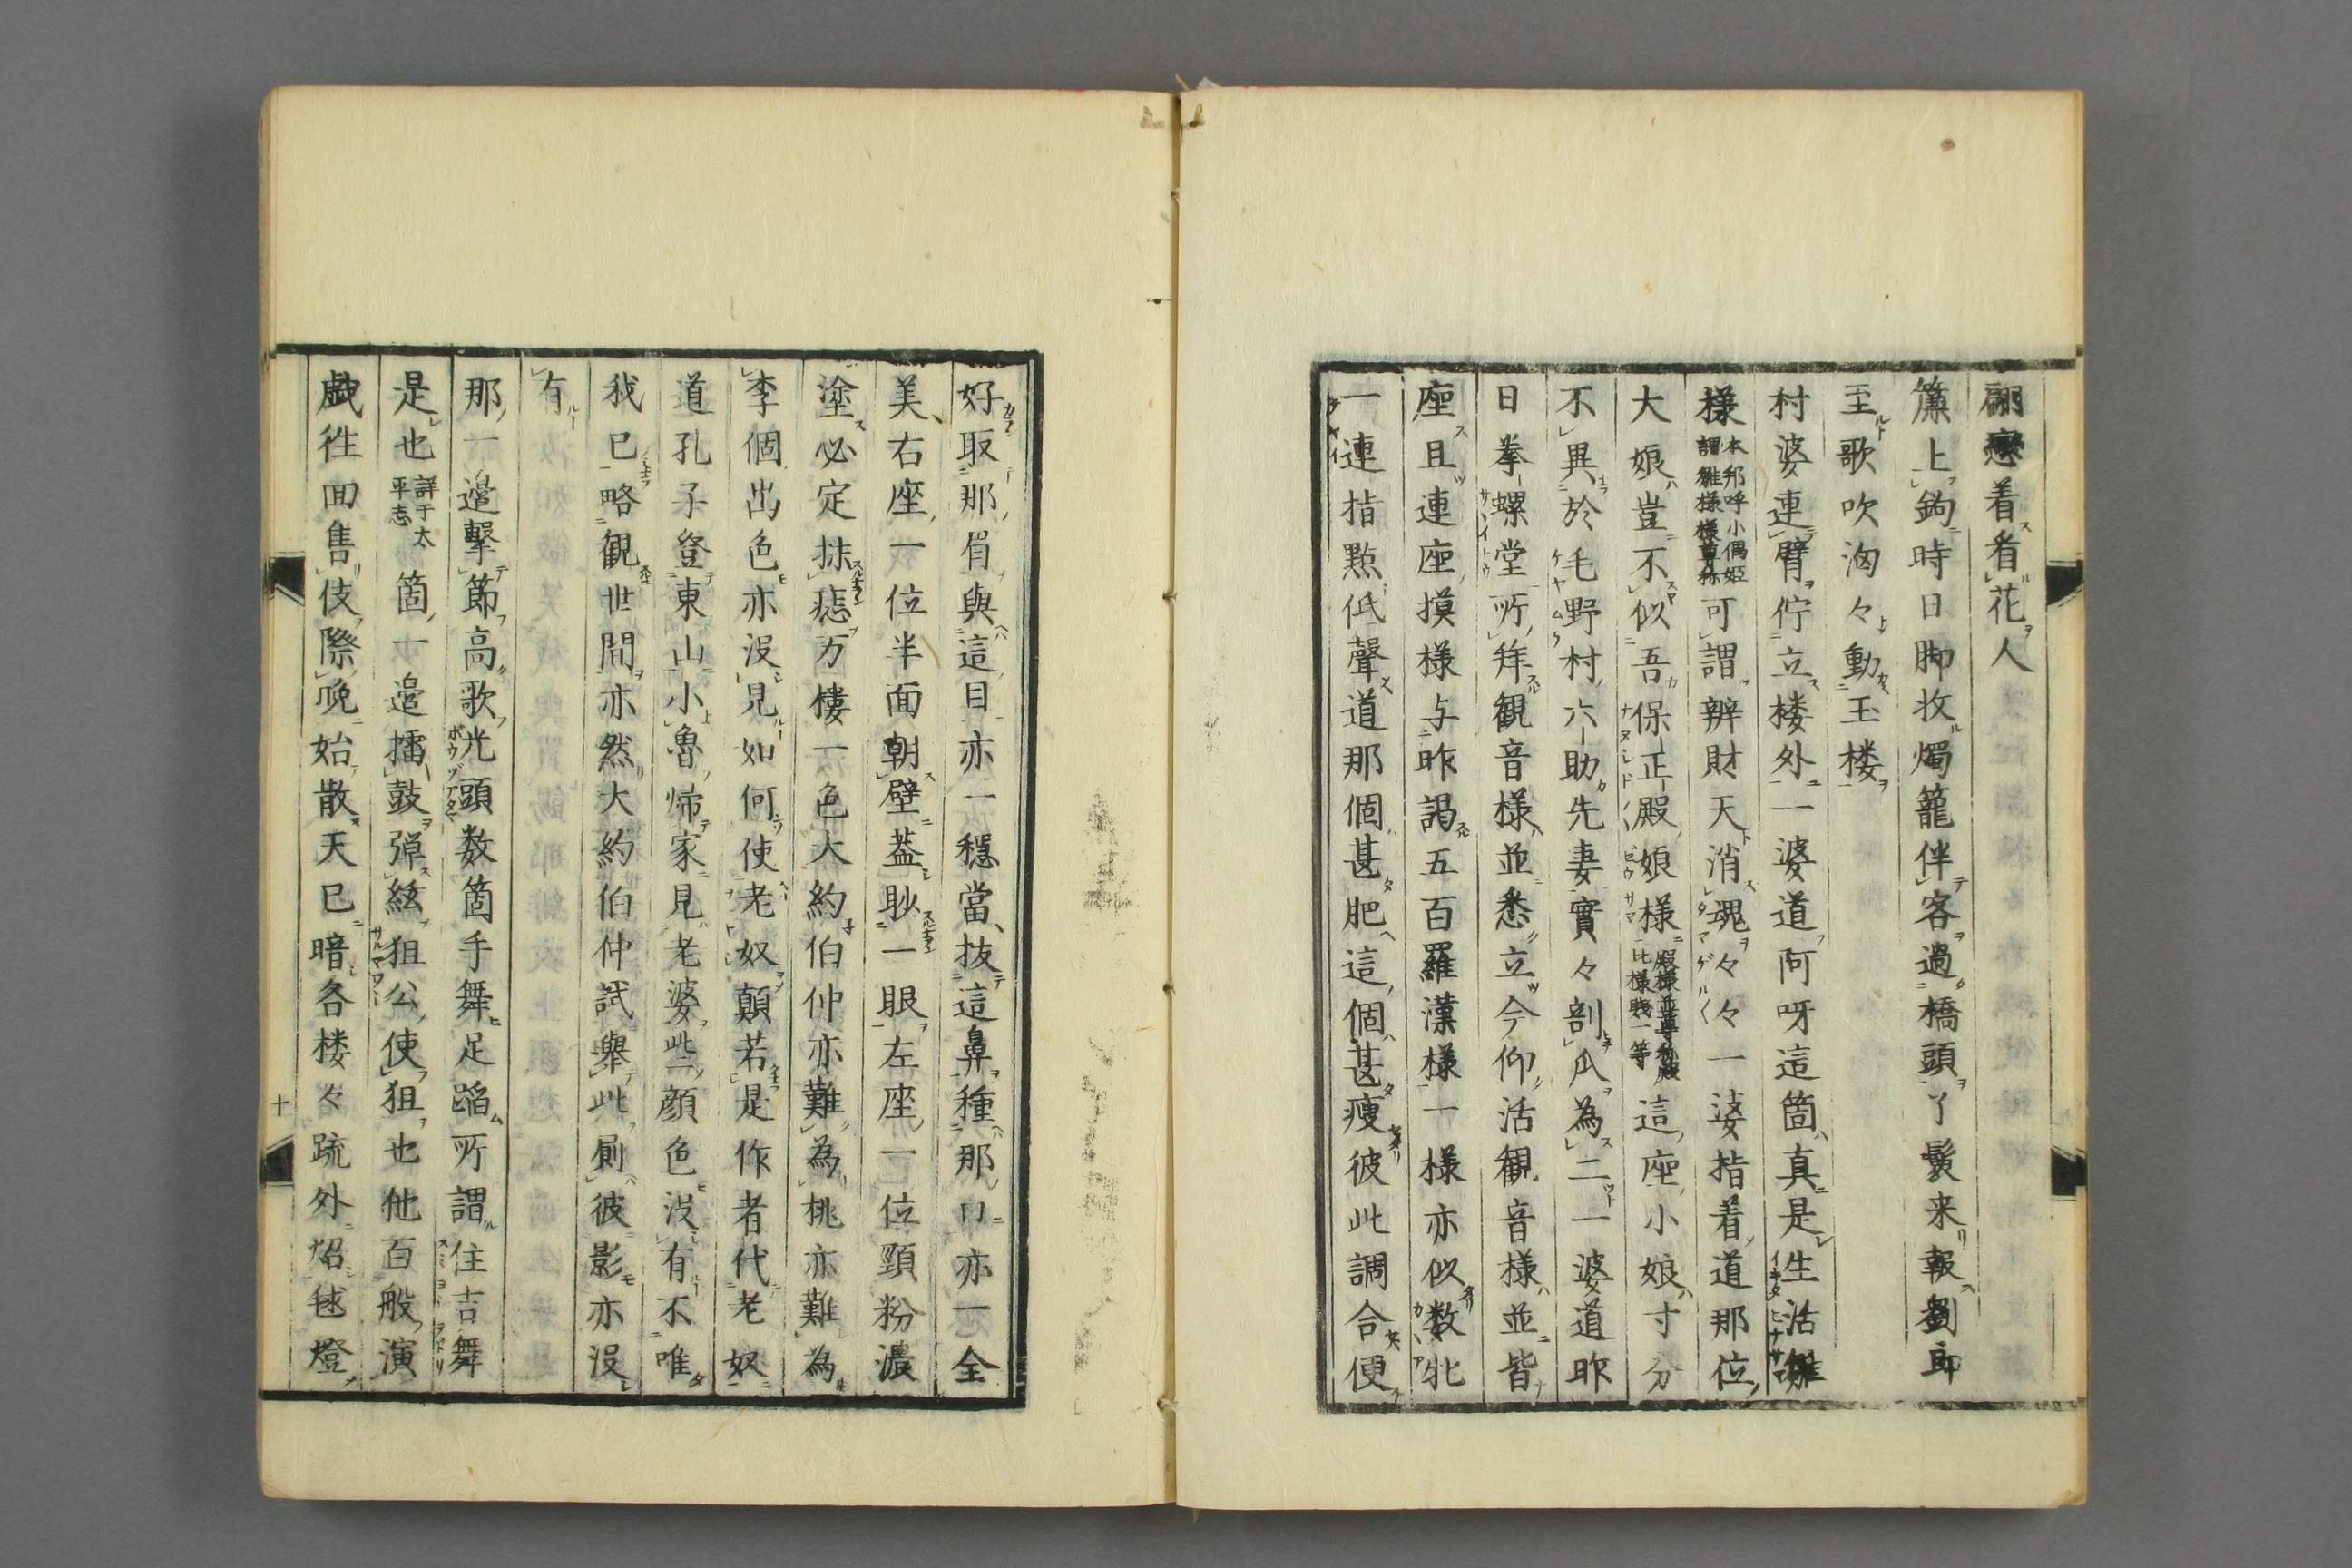 翩戀着看花人
簾上鉤時日脚收燭籠伴客過橋頭了鬟来報劉郎
至歌吹洶々動玉楼
村婆連臂佇立楼外一婆道阿呀這箇真是生活雛
様本邦呼小偶姫謂雛様様尊称可謂辨財天消魂々々々一婆指着道那位
大娘豈不似吾保正殿娘様殿様並尊称殿比様賤一等這座小娘寸分
不異於毛野村六助先妻實々剖瓜為二一婆道昨
日拳螺堂所拝観音様並悉立今仰活観音様並皆
座且連座摸様与昨謁五百羅漢様一様亦似数牝
一連指點低聲道那個甚肥這個甚痩彼此調合便
好取那眉與這目亦一穏當抜這鼻種那口亦一全
美右座一位半面朝壁蓋眇一眼左座一位頸粉濃
塗必定抹痣万楼一色大約伯仲亦難為桃亦難為
李個出色亦没見如何使老奴顛若是作者代老奴
道孔子登東山小魯帰家見老婆些顔色没有不唯
我已略観世間亦然大約伯仲試舉此則彼影亦没
有
那一邉撃節高歌光頭数箇手舞足蹈所謂住吉舞
是也詳于太平志箇一邉擂鼓弾絃狙公使狙也他百般演
戯徃回售伎際晩始散天已暗各楼々疏外炤毬燈
十